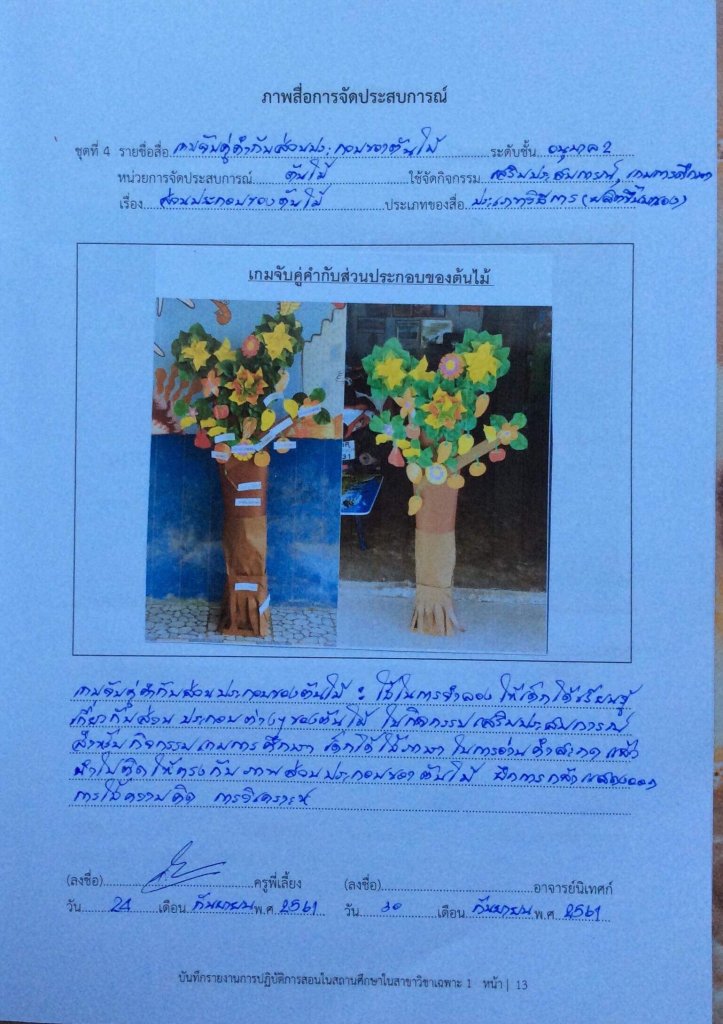 ภาพสื่อการจัดประสบการณ์
ชุดที่ 4 รายชื่อสื่อ เกมจับคู่คำกับส่วนประกอบของต้นไม้ ระดับชั้น อนุบาล 2
หน่วยการจัดประสบการณ์ ต้นไม้ ใช้จัดกิจกรรม เสริมประสบการณ์, เกมการศึกษา
เรื่อง ส่วนประกอบของต้นไม้ ประเภทของสื่อ ประเภทวิธีการ (ผลิตขึ้นเอง)
เกมจับคู่คำกับส่วนประกอบของต้นไม้
เกมจับคู่คำกับส่วนประกอบของต้นไม้ : ใช้ในการจำลอง ให้เด็กได้เรียนรู้
เกี่ยวกับส่วนประกอบต่างๆของต้นไม้ ในกิจกรรมเสริมประสบการณ์
สำหรับกิจกรรมเกมการศึกษา เด็กได้ใช้ภาษา ในการอ่านคำสะกด แล้ว
นำไปติดให้ตรงกับ ภาพส่วนประกอบของต้นไม้ ฝึกการกล้าแสดงออก
การใช้ความคิด การวิเคราะห์
(ลงชื่อ) ครูพี่เลี้ยง (ลงชื่อ) อาจารย์นิเทศก์
วัน 24 เดือน กันยายน พ.ศ. 2561 วัน เดือน กันยายน พ.ศ. 2561
บันทึกรายงานการปฏิบัติการสอนในสถานศึกษาในสาขาวิชาเฉพาะ 1 หน้า | 13